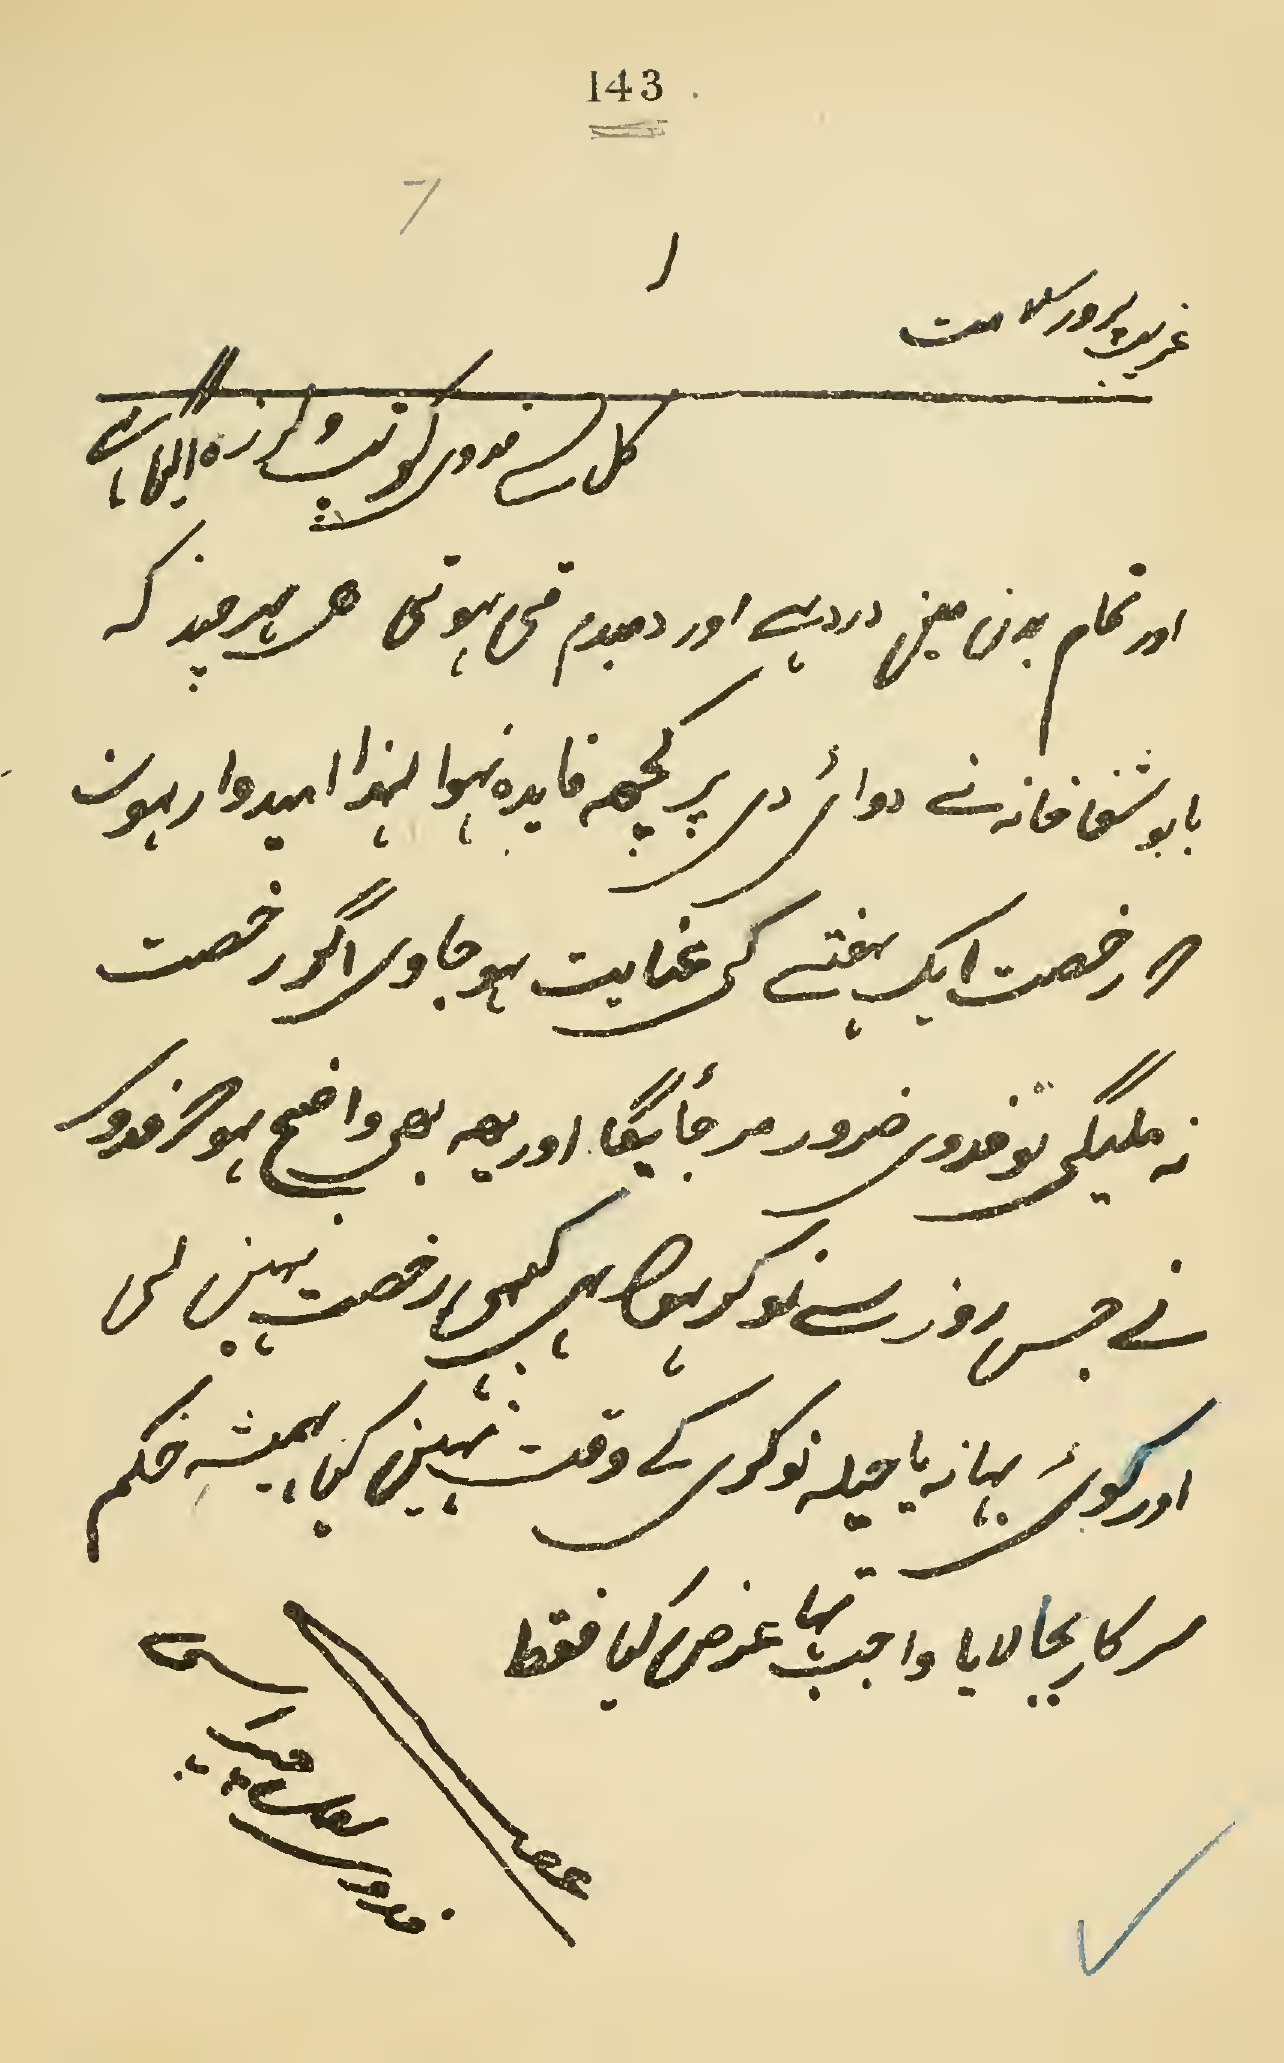 143
7
۱
غریب پرور سلامت
کل سے فدوی کو تپ و لرزہ آتا ہے
اور تمام بدن مین درد ہے اور دمبدم قی ہوتی ھی ہر چند کہ
بابو شفاخانہ نے دوائی دی پر کچھہ فایدہ نہوا لہذا امیدوار ہون
کہ رخصت ایک ہفتے کی عنایت ہو جاوی اگر رخصت
نہ ملیگی تو فدوی ضرور مر جائیگا اور یہہ بھی واضح ہو کہ فدوی
نے جس روز سے نوکر ہوا ہی کبھی رخصت نہین لی
اور کوئی بہانہ یا حیلہ نوکری کے وقت نہین کیا ہمیشہ حکم
سرکار بجا لایا واجب تہا عرض کیا فقط
عرضے
فدوی